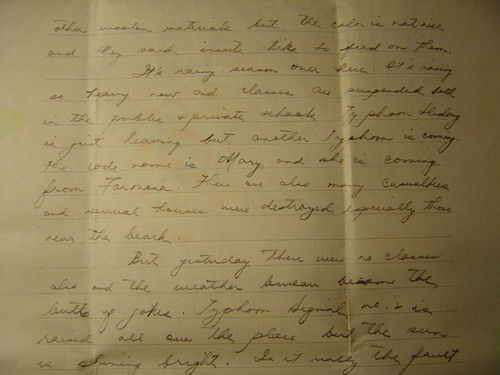 other woolen materials but the color is not nice
and they said insects like to feed on them.
It's rainy season over here. It's raining
so heavy now and classes are suspended both
in the public & private schools. Typhoon
is just leaving but another Typhoon is coming.
The code name is Mary and she is coming
from Formosa. There are also many casualties
and several houses were destroyed especially those
near the beach.
But yesterday there were no classes
also and the weather bureau became the
butt of jokes. Typhoon Signal no. 2 is
raised all over the place but the sun
is shining bright. Is it really the fault